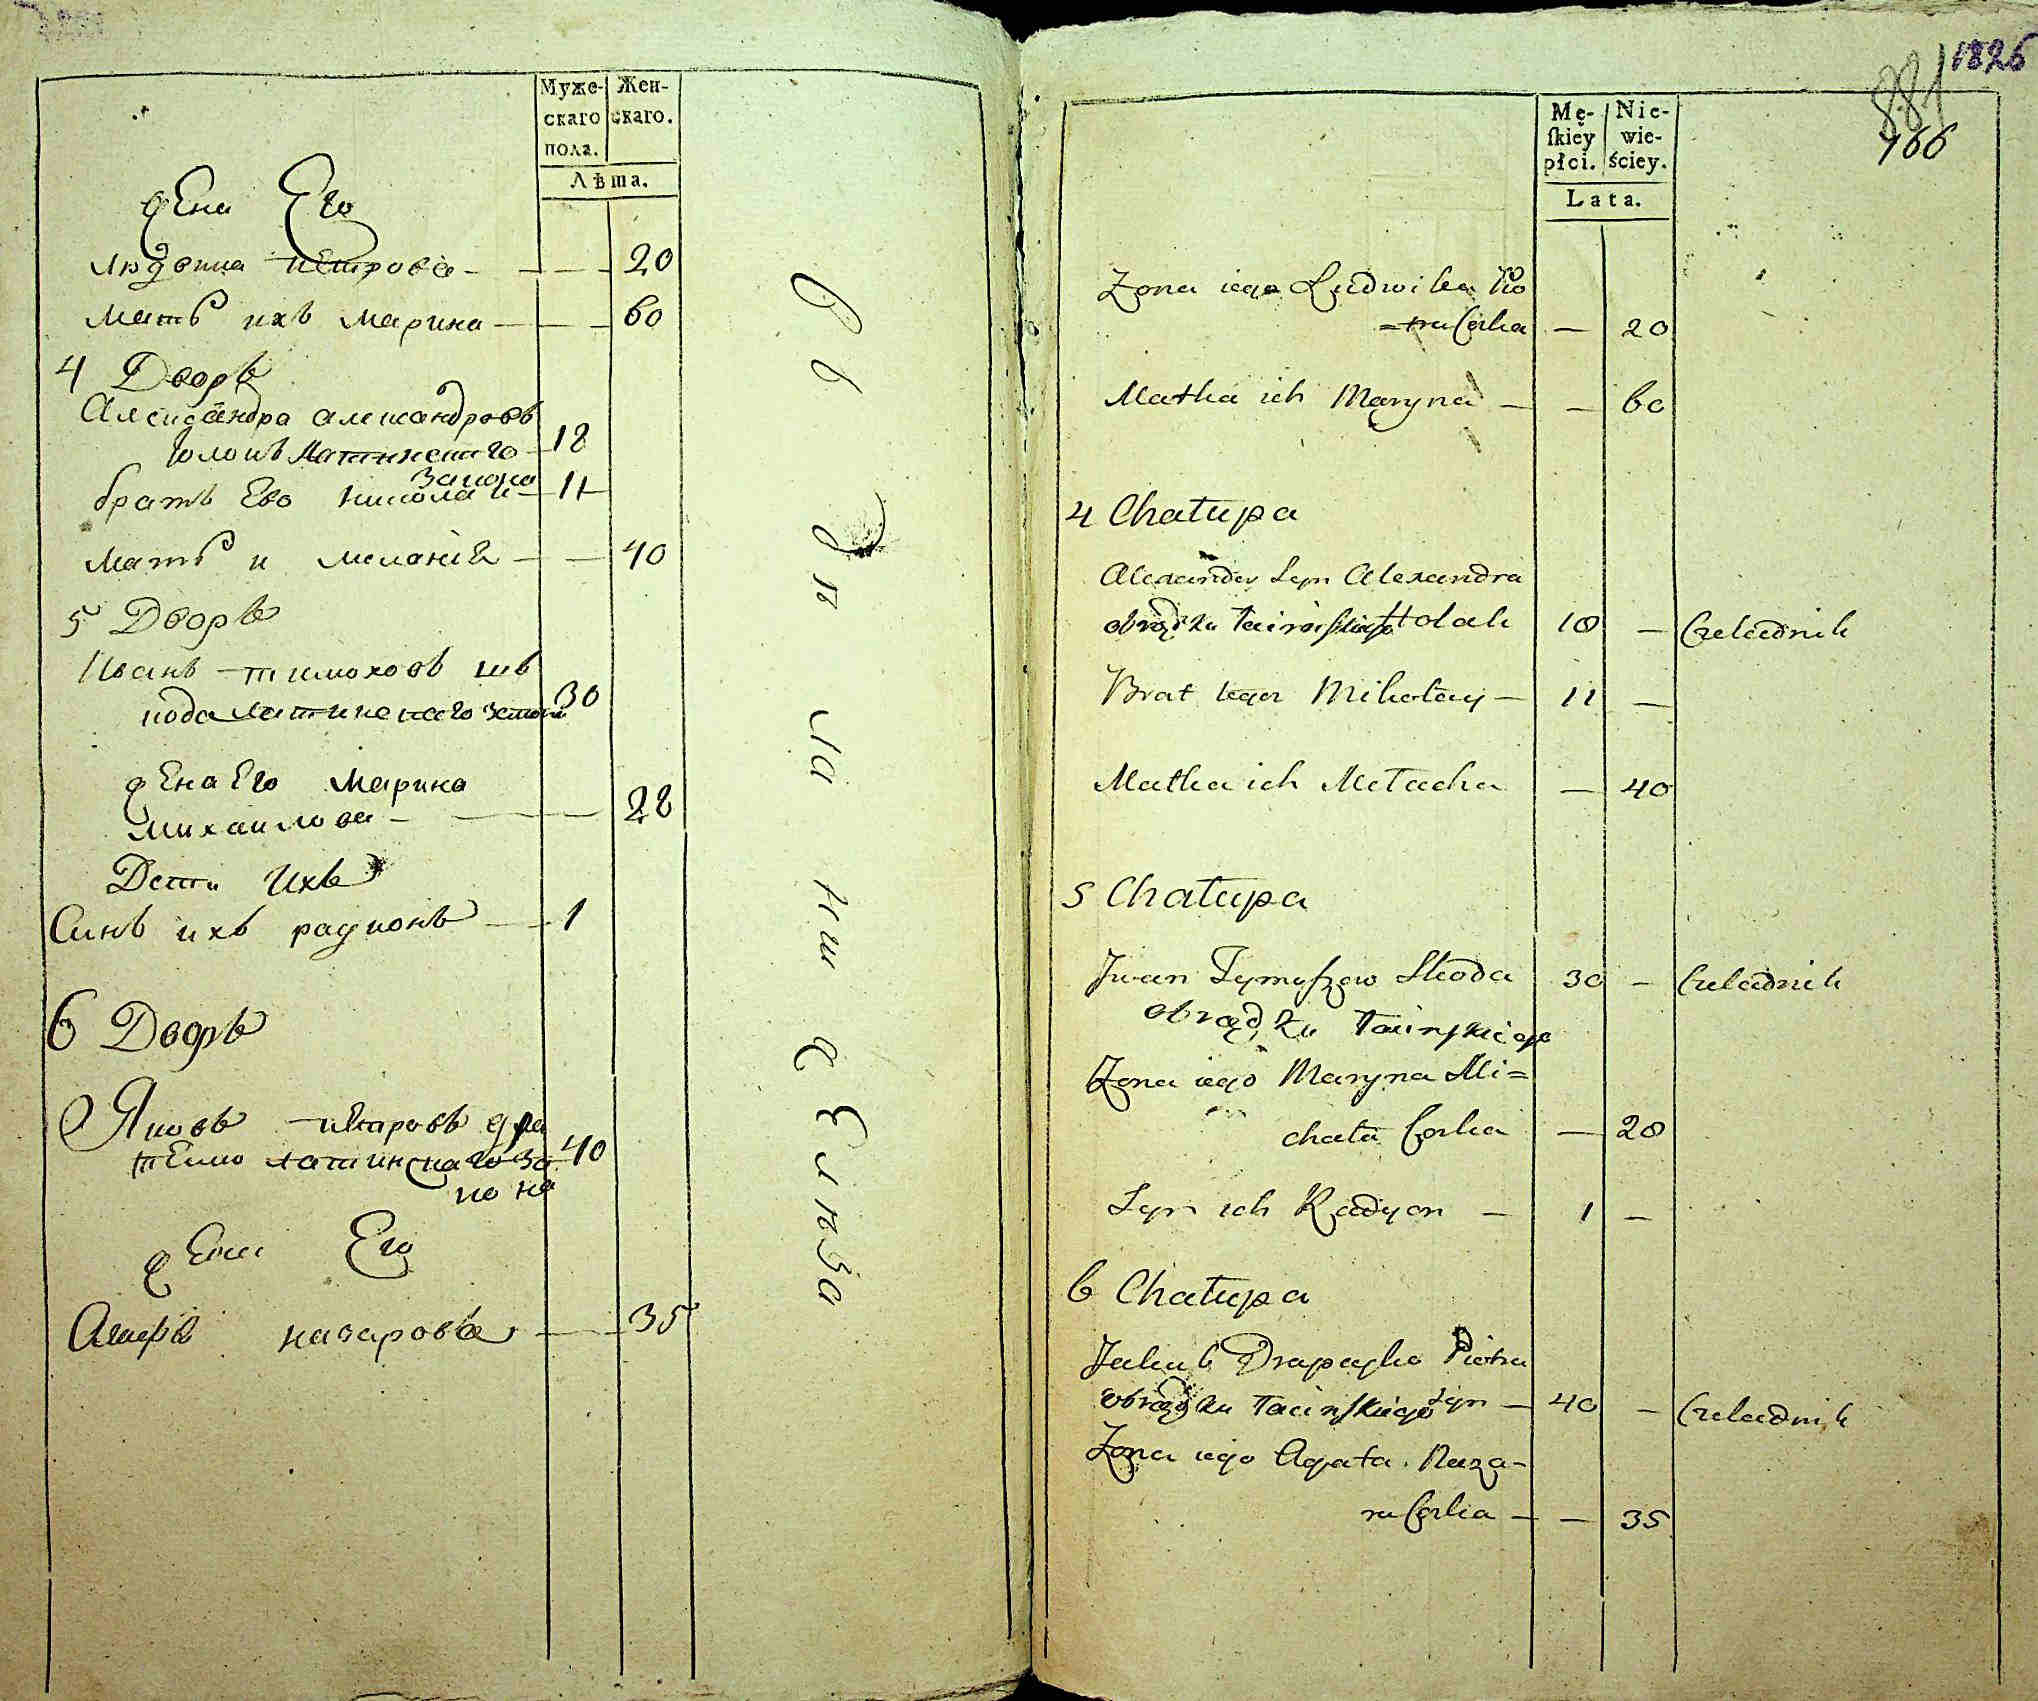 Муже-
скаго
пола.
Жен-
скаго.
Лѣта.
жена Его
людвика петрова - 20
мать ихъ марина - 60
4 Дворъ
Александра александровъ
голокъ латинскаго 18
закона
братъ Ево николай 11
мать и 40
5 Дворъ
Иванъ тимоховъ шко
ода латинскаго закона 30
жена Его марина
михаилова - 28
Дети ихъ
Синъ ихъ радионъ 1
6 Дворъ
Яковъ петровъ дра
латинскаго за 40
кона
жена Его
Агафя назарова 35
обѣлинителнва
1826
881
466
Mę-
ſkiey
płci.
Nie-
wie-
ściey.
Lata.
Zona iego Ludwika Pio
=tra Corka — 20
Matka ich Maryna — — 60
4 Chałupa
Alexander Syn Alexandra
obrządku łacinſkiego Holak 18 — Czeladnik
Brat iego Mikołay — 11 —
Matka ich Małacha — 40
5 Chałupa
Jwan Tymoſzow Skoda 30 — Czeladnik
obrządku łacinſkiego
Zona iego Maryna Mi=
chała Corka — 28
Syn ich Radyon — 1 —
6 Chałupa
Jakub Drapayko Piotra
obrządku łacinſkiego Syn — 40 — Czeladnik
Zona iego Agata Naza-
ra Corka — — 35